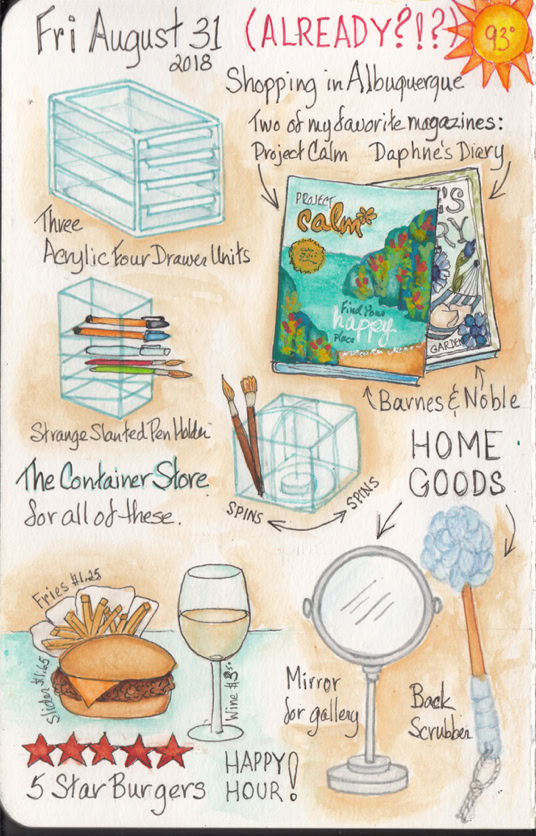 Fri August 31 (ALREADY?!?)
2018
93°
Shopping in Albuquerque
Two of my favorite magazines:
Project Calm Daphne's Diary
PROJECT
calm
Find Your
happy
Place
'S
RY
GARDEN
Three
Acrylic Four Drawer Units
Barnes & Noble
Strange Slanted Pen Holder
The Container Store
for all of these.
SPINS SPINS
HOME
GOODS
Fries $1.25
Slider $1.65
Wine $3.50
Mirror
for gallery
Back
Scrubber
5 Star Burgers
HAPPY
HOUR!